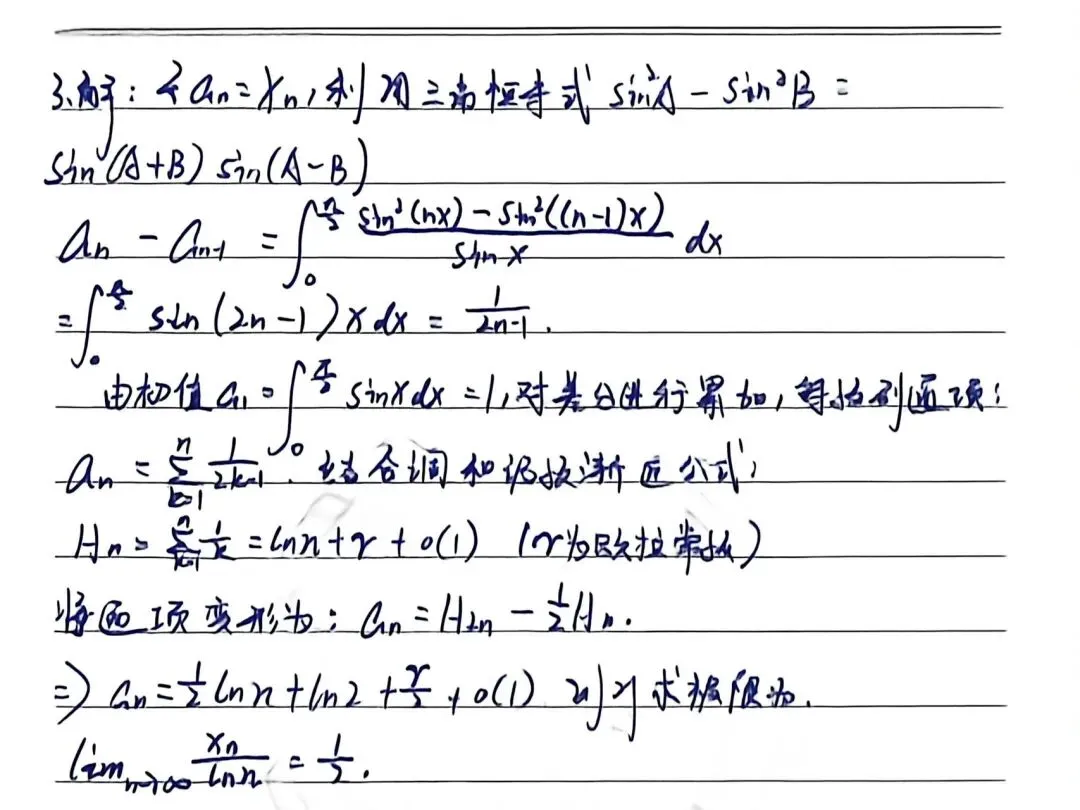 3.解: 令 aₙ = xₙ, 利用三角恒等式 sin²A - sin²B =
sin(A+B) sin(A-B)
aₙ - aₙ₋₁ = ∫₀^{π/2} (sin²(nx) - sin²((n-1)x))/(sin x) dx
= ∫₀^{π/2} sin(2n-1)x dx = 1/(2n-1).
由初值 a₁ = ∫₀^{π/2} sin x dx = 1, 对差分进行累加, 得数列通项:
aₙ = ∑_{k=1}^{n} 1/(2k-1). 结合调和级数渐近公式:
Hₙ = ∑_{k=1}^{n} 1/k = ln n + γ + o(1) (γ为欧拉常数)
将通项变形为: aₙ = H₂ₙ - 1/2 Hₙ.
⇒ aₙ = 1/2 ln n + ln 2 + γ/2 + o(1) 则求极限为.
lim_{n→∞} xₙ/(ln n) = 1/2.